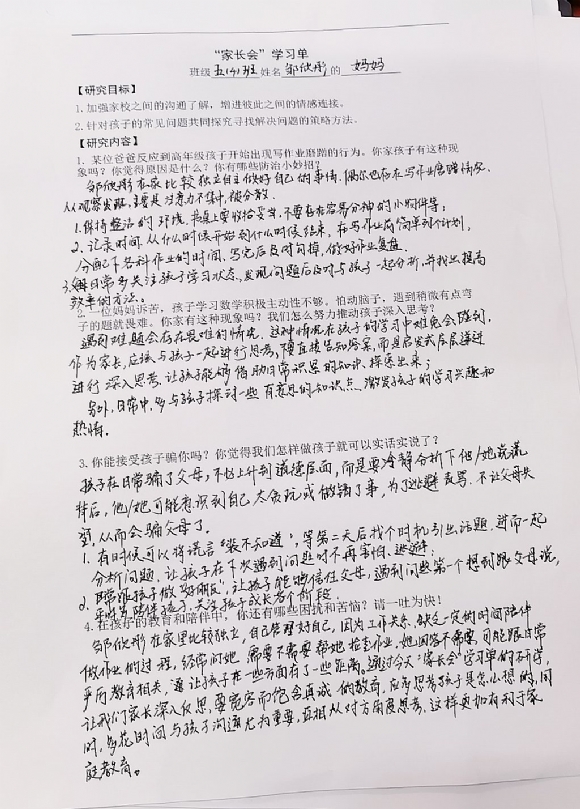 “家长会”学习单
班级 五(4)班 姓名 邹欣彤 的 妈妈
【研究目标】
1.加强家校之间的沟通了解，增进彼此之间的情感连接。
2.针对孩子的常见问题共同探究寻找解决问题的策略方法。
【研究内容】
1. 某位爸爸反应到高年级孩子开始出现写作业磨蹭的行为。你家孩子有这种现
象吗？你觉得原因是什么？你有哪些防治小妙招？
邹欣彤在家比较独立自主做好自己的事情，偶尔也存在写作业磨蹭情况，
从观察发现，主要是注意力不集中，被分散。
1.保持整洁的环境，书桌上要收拾妥当，不要存在容易分神的小物件等。
2、记录时间，从什么时候开始到什么时候结束，在写作业前简单列个计划，
分配下各科作业的时间，写完后及时勾掉，做好作业复盘。
3.日常多关注孩子学习状态，发现问题后及时与孩子一起分析，并找出提高
效率的方法。
2.一位妈妈诉苦，孩子学习数学积极主动性不够。怕动脑子，遇到稍微有点弯
子的题就畏难。你家有这种现象吗？我们怎么努力推动孩子深入思考？
遇到难题会存在畏难的情况，这种情况在孩子的学习中难免会碰到，
作为家长，应该与孩子一起进行思考，不要直接告知答案，而是启发式层层递进
进行深入思考，让孩子能够借助日常积累的知识，探索出来；
另外，日常中，多与孩子探讨一些有意思的知识点，激发孩子的学习兴趣和
热情。
3.你能接受孩子骗你吗？你觉得我们怎样做孩子就可以实话实说了？
孩子在日常骗了父母，不必上升到道德层面，而是要冷静分析下他/她说谎
背后，他/她可能意识到自己太贪玩或做错了事，为了逃避责骂，不让父母失
望，从而会骗父母了。
1. 有时候可以将谎言“装不知道”，等第二天后找个时机引出话题，进而一起
分析问题，让孩子在下次遇到问题时不再害怕、逃避；
2. 日常跟孩子做“好朋友”，让孩子能够信任父母，遇到问题第一个想到跟父母说，
平时多陪伴孩子，关注孩子成长各个阶段。
4.在孩子的教育和陪伴中，你还有哪些困扰和苦恼？请一吐为快！
邹欣彤在家里比较独立，自己管理好自己，因为工作关系，缺乏一定的时间陪伴
做作业的过程，经常问她，需要不需要帮她检查作业，她回答不需要，可能跟日常
严厉教育相关，让孩子在一些方面有了一些距离。通过今天“家长会”学习单的研学，
让我们家长深入反思，要宽容而饱含真诚的教育，应多思考孩子是怎么想的，同
时，多花时间与孩子沟通尤为重要，互相从对方角度思考，这样更加有利于家
庭教育。